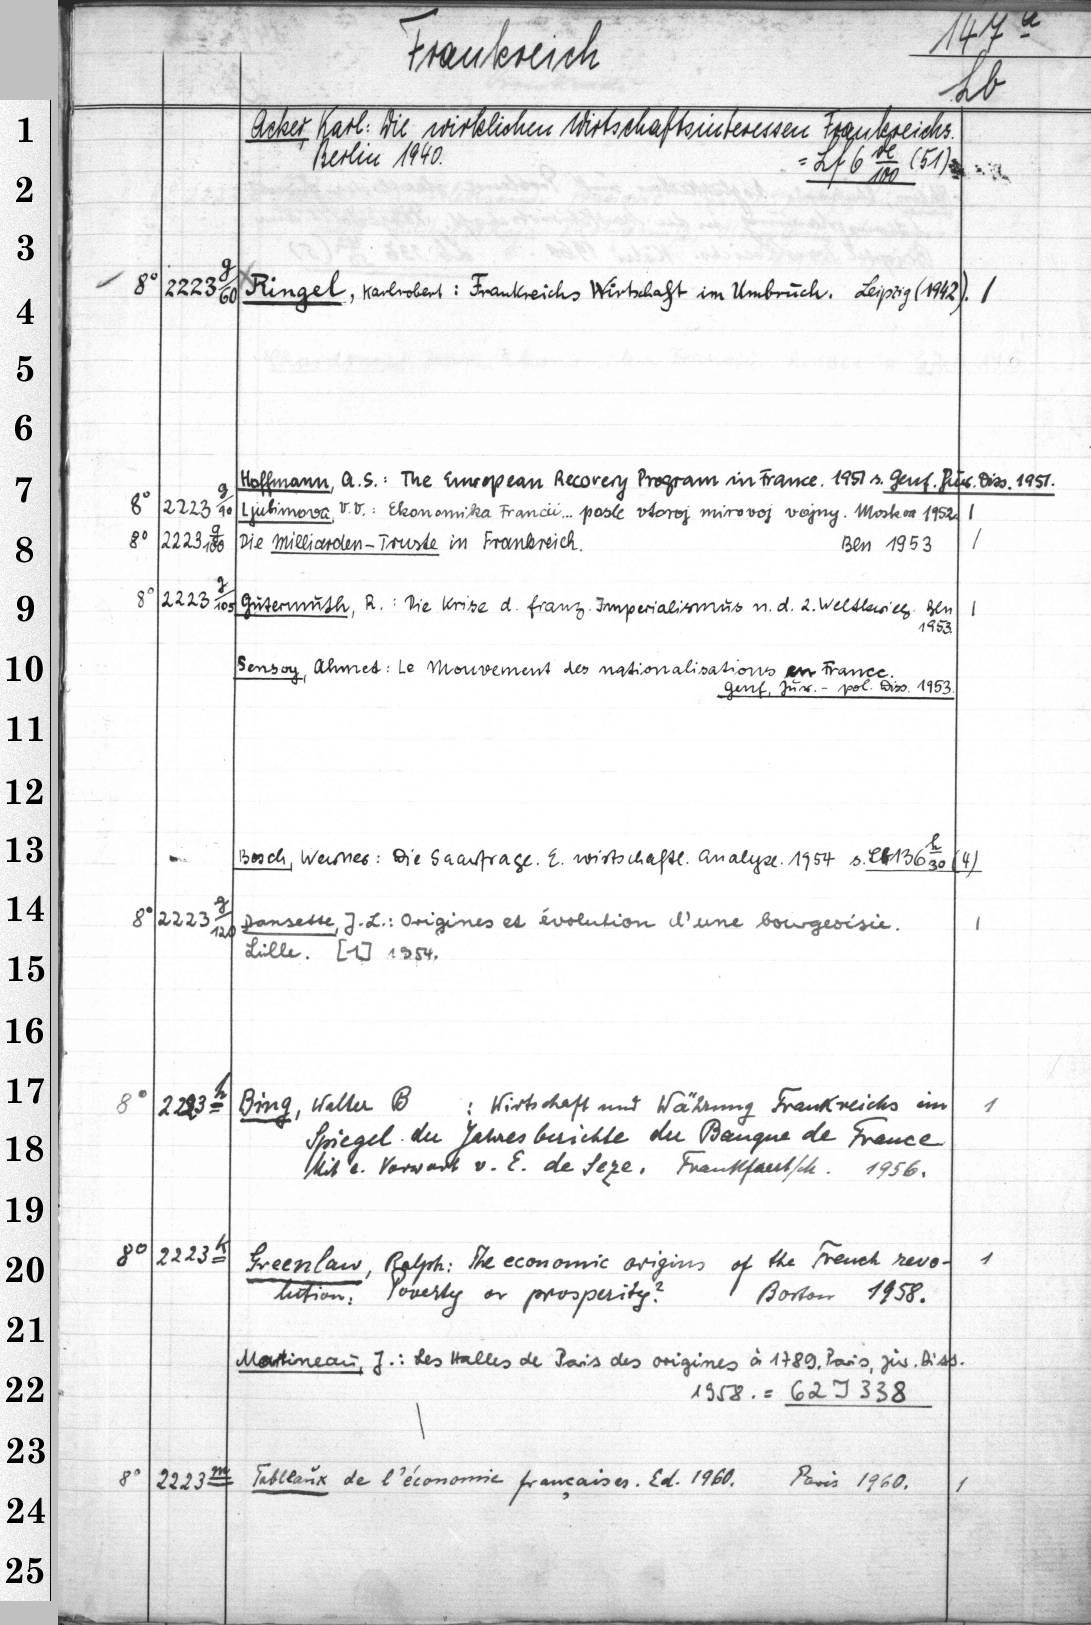 Frankreich
147 a
Lb
1
Acker, Karl: Die wirklichen Wirtschaftsinteressen Frankreichs.
Berlin 1940. = Lf 6 (51)
2
3
8° 2223 g/60 Ringel, Karlrobert: Frankreichs Wirtschaft im Umbruch. Leipzig (1942). 1
4
5
6
7
Hoffmann, A.S.: The European Recovery Program in France. 1951 s. Genf. Jur. Diss. 1951.
8° 2223 g/90 Ljubimova, V.V.: Ekonomika Francii... posle vtoroj mirovoj vojny. Moskva 1952. 1
8
8° 2223 g/100 Die Milliarden-Truste in Frankreich. Bln 1953 1
9
8° 2223 g/105 Gutermuth, R.: Die Krise d. franz. Imperialismus n. d. 2. Weltkrieg. Bln 1
1953.
10
Sensoy, Ahmet: Le Mouvement des nationalisations en France.
Genf, Jur.- pol. Diss. 1953.
11
12
13
Bosch, Werner: Die Saarfrage. E. wirtschaftl. Analyse. 1954 s. Lb 136 h/30 (4)
14
8° 2223 g/120 Dansette, J.L.: Origines et évolution d'une bourgeoisie. 1
Lille. [1] 1954.
15
16
17
8° 2223 h Bing, Walter B : Wirtschaft und Währung Frankreichs im 1
18
Spiegel der Jahresberichte der Banque de France
Mit e. Vorwort v. E. de Seze. 1956.
19
20
8° 2223 k Greenlaw, Ralph: The economic origins of the French revo- 1
lution: Poverty or prosperity? Boston 1958.
21
Martineau, J.: Les Halles de Paris des origines à 1789. Paris, jur. Diss.
22
1958. = 62 J 338
23
8° 2223 m Tableaux de l'économie françaises. Ed. 1960. Paris 1960. 1
24
25